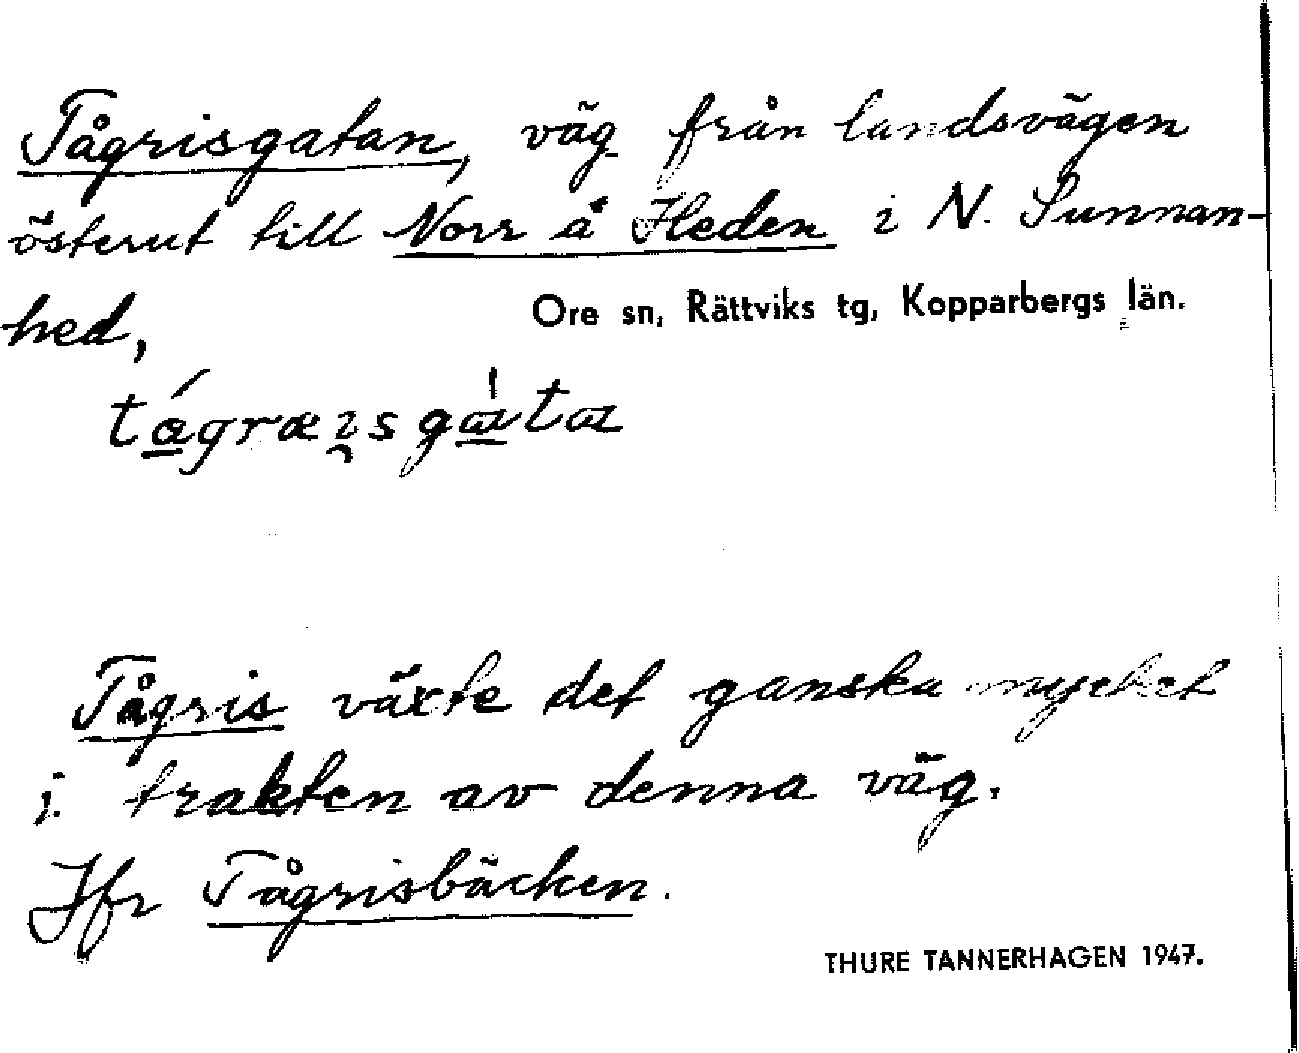 Tågrisgatan, väg från landsvägen
österut till Norr å Heden i N. Sunnan-
hed,
Ore sn, Rättviks tg, Kopparbergs län.
tågræisgata
Tågris växte det ganska mycket
i trakten av denna väg.
Jfr Tågrisbäcken.
THURE TANNERHAGEN 1947.